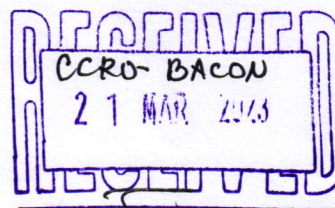 RECEIVED
CCRO- BACON
21 MAR 2023